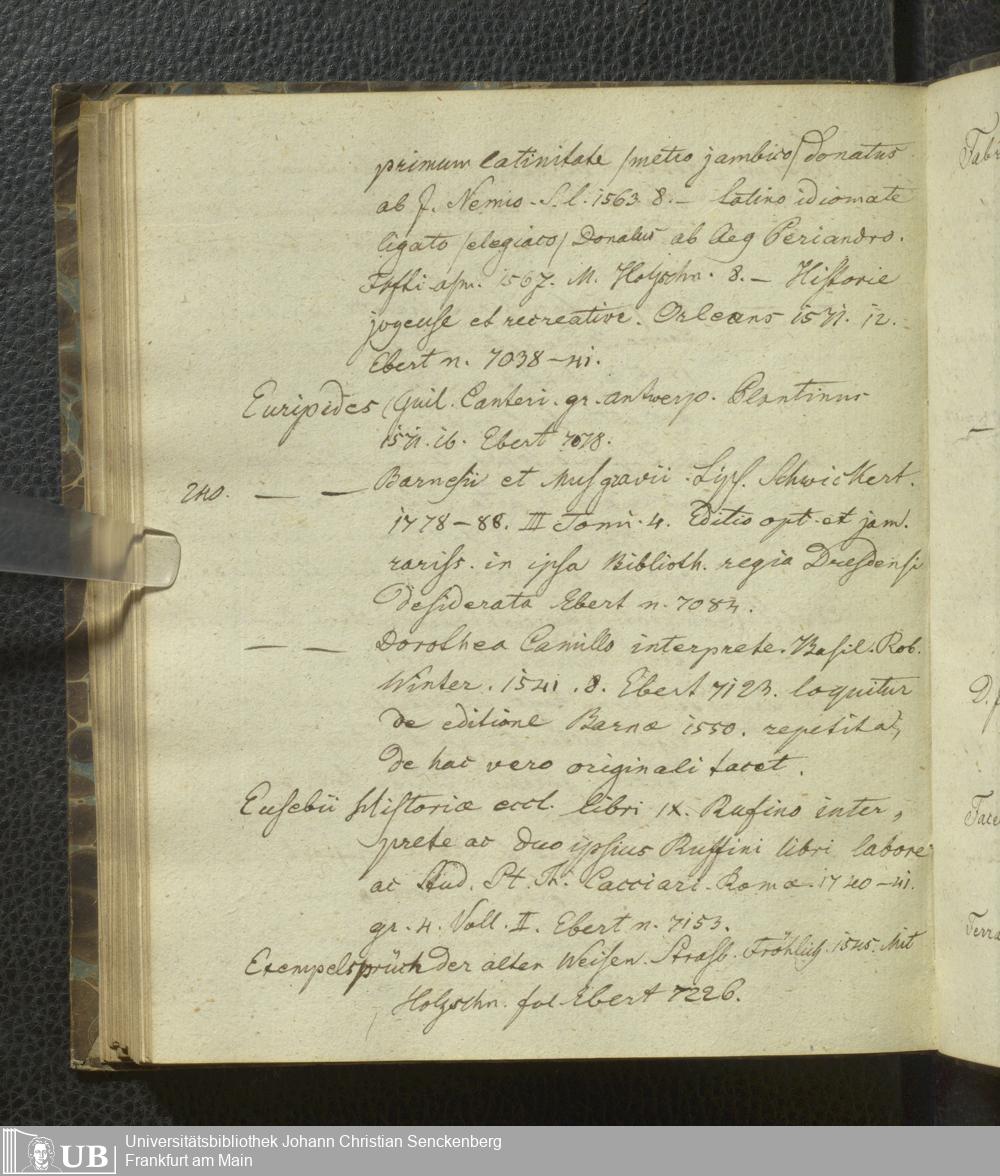 primum latinitate /metro jambico/ donatus
ab J. Nemio. S. l. 1563 8. – Latino idiomate
ligato /elegiaco/ Donatus ab Aeg Periandro.
1567. M. Holzschn. 8. – Historie
joyeuse et recreative. Orleans 1571. 12.
Ebert n. 7038–41.
Euripides Guil. Canteri. gr. antwerp. Plantinus
1571. 16. Ebert 7078.
240. — — Barnesii et Musgravii. Lips. Schwickert.
1778–88. III Tomi. 4. Editio opt. et jam.
rariss. in ipsa Biblioth. regia Dresdensi
desiderata Ebert n. 7084.
— — Dorothea Camillo interprete. Basil. Rob.
Winter. 1541. 8. Ebert 7123. loquitur
de editione Bernæ 1550. repetita,
de hac vero originali tacet.
Eusebii Historiæ eccl. libri IX. Rufino inter,
prete ac duo ipsius Ruffini libri labore
ac stud. Pt. Th. Cacciari. Romæ. 1740–41.
gr. 4. Voll. II. Ebert n. 7153.
Exempelsprüch der alten Weisen. Strasb. Fröhlich. 1545. Mit
Holzschn. fol. Ebert 7226.
Fabr
—
D.
Face
Terra
UB
Universitätsbibliothek Johann Christian Senckenberg
Frankfurt am Main